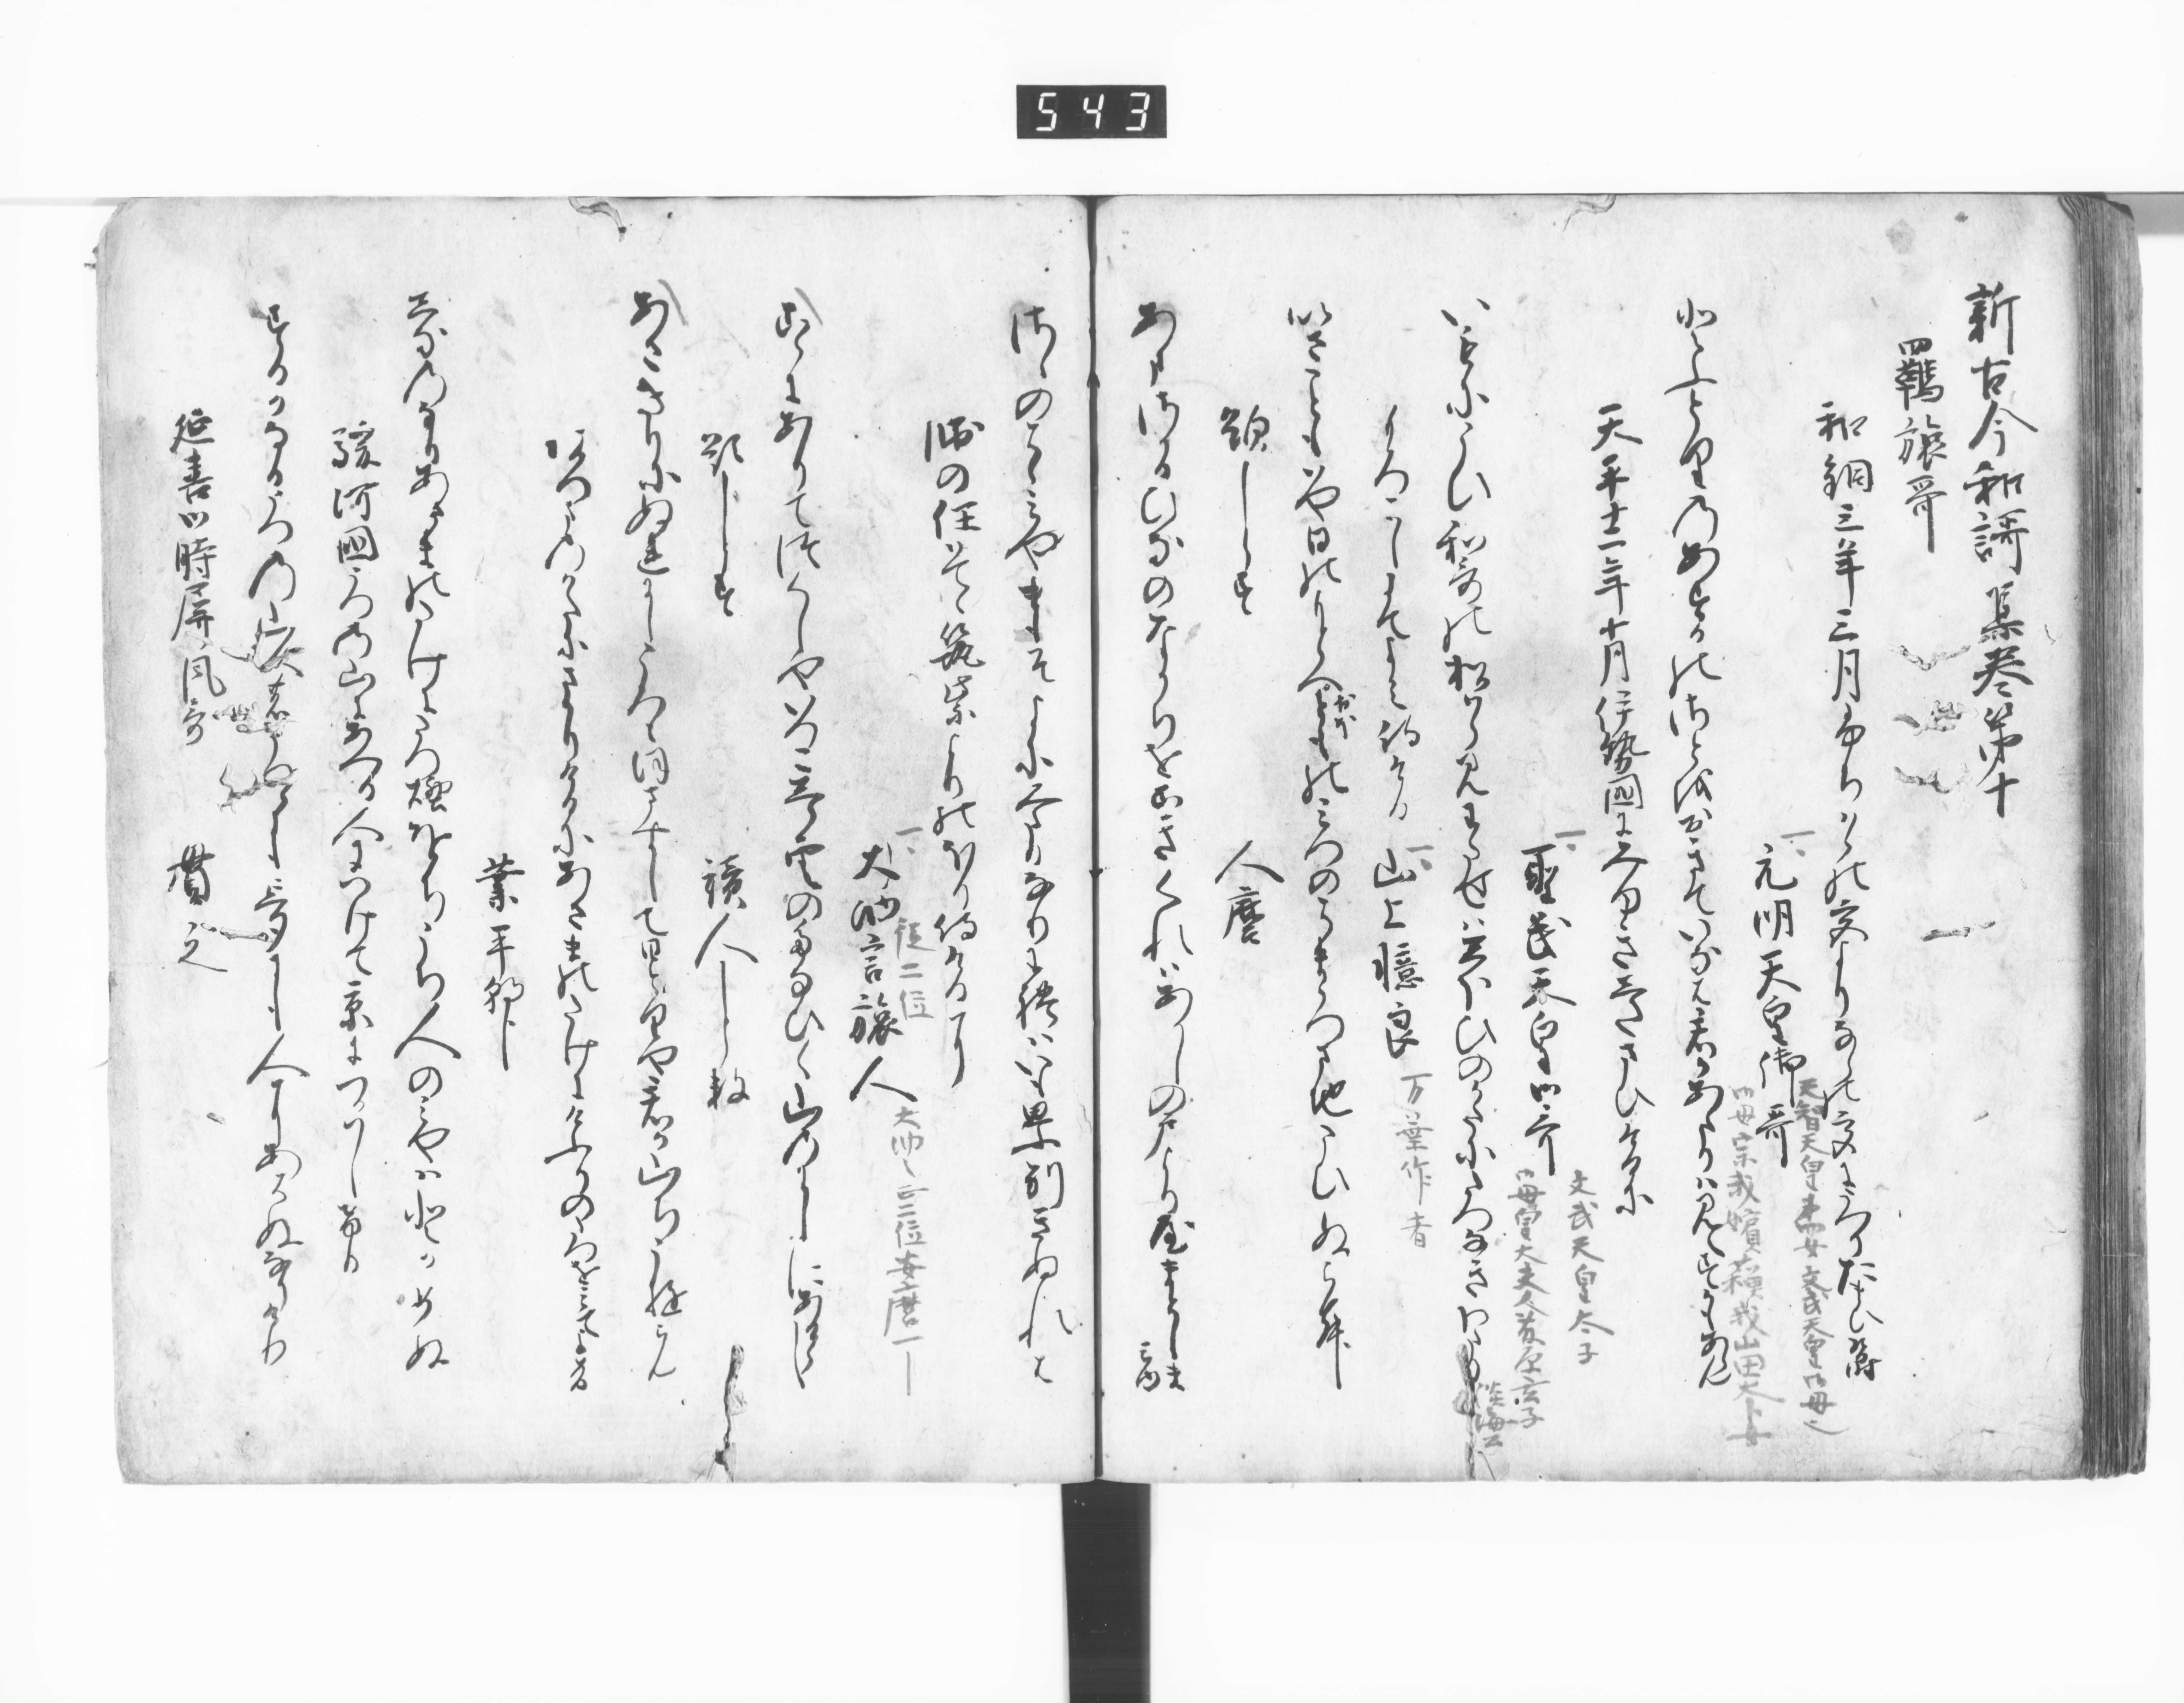 543
新古今和謌集巻第十
羈旅哥
和銅三年三月ふちはらの宮よりならの宮にうつりたまひ
元明天皇御哥
天智天皇 女文武天皇御母
御母宗我嬪蘓我山田大 女
とふとりのあすかのさとををきていなは君かあたりは見えすかもあらん
天平十二年十月伊勢國にみゆきし給ひける
聖武天皇御哥
文武天皇太子
母皇大夫人藤原宮子
淡海公
いもにこひ和哥の松はら見わたせはしほひのかたにたつなきわたる
もろこしにてよみ侍ける
山上憶良
万葉作者
いさこともはや日のもとへおほとものみつのはま松まち恋ぬらむ
題しらす
人麿
あまさかるひなのなかちをこきくれはあかしのとより山としまみゆ
さゝのはゝみ山もそよにみたるなりわれはいも思別きぬれは
帥の任はてゝ筑紫よりのほり侍けるに
大納言旅人
従二位
大納言 二位安麿一
こゝにありてつくしやいつこ白雲のたなひく山のにしにあるらし
題しらす
讀人しらす
あさ霧にぬれにし衣ほさすしてひとりや君か山ちこゆらん
業平朝臣
しなのなるあさまのたけに立煙をちこち人のみやはとかめぬ
駿河國うつの山にあへる人につけて京につかはしける
するかなるうつの山邊のうつゝにも夢にも人にあはぬなりけり
延喜御時屏風哥
貫之